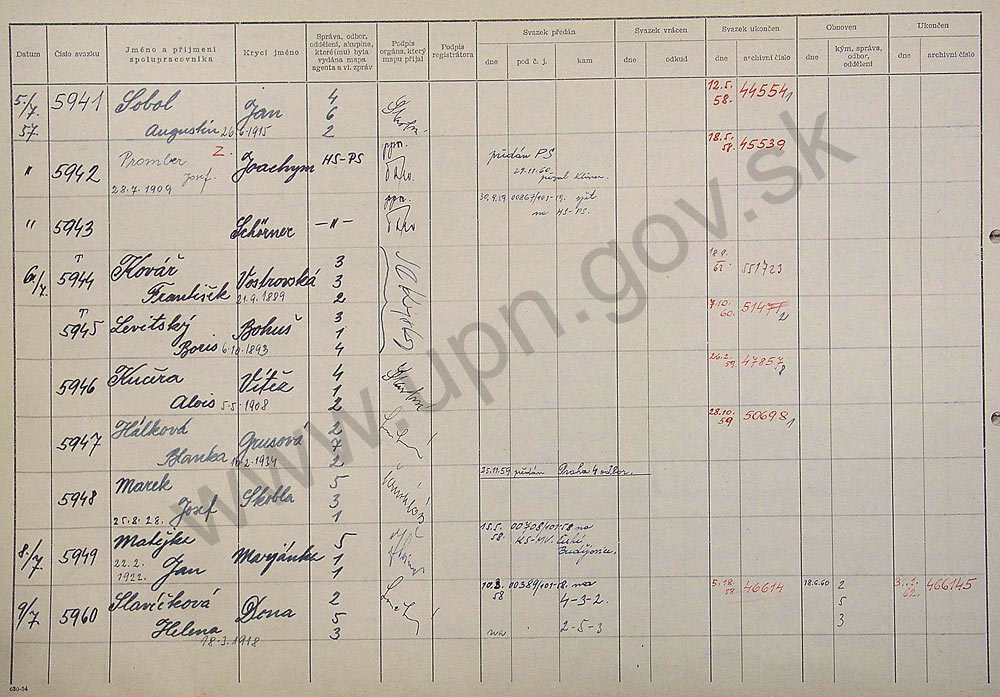 Datum
Číslo svazku
Jméno a příjmení
spolupracovníka
Krycí jméno
Správa, odbor,
oddělení, skupina,
které(mu) byla
vydána mapa
agenta a vl. zpráv
Podpis
orgána, který
mapu přijal
Podpis
registrátora
Svazek předán
dne
pod č. j.
kam
Svazek vrácen
dne
odkud
Svazek ukončen
dne
archivní číslo
Obnoven
dne
kým, správa,
odbor,
oddělení
Ukončen
dne
archivní číslo
5./7. 57. 5941 Sobol Jan 4 12.5. 58. 44554 1
Augustin 26.6.1915 6
2
" 5942 Promber Z. Joachym HS-PS předán PS 18.5. 58. 45539
Josef. 29.11.60
28.7.1909
30.9.59 00867/401-59. zpět
na HS-PS.
" 5943 Schörner —"—
6./7. T 5944 Kovář Vostrovská 3 551723
František 21.9.1889 3
2
T 5945 Levitský Bohuš 3 7.10. 60. 5147
Boris 6.10.1893 1
4
5946 Kučera Vítěz 4 26.2. 59. 47857 8
Alois 5.5.1908 1
2
5947 Hálková Grusová 2 28.10. 59 50698 1
Blanka 2.1934 7
2
25.11.59 předán Praha 4 odbor.
5948 Marek Skobla 5
25.8.28. Josef 3
1
8/7 5949 Matějka Maryánka 5 15.5. 58. 00708/401-58 na
22.2. 1922. Jan 1 KS-MV. České
1 Budějovice.
9/7 5960 Slavíčková Dona 2 58 00389/401-58. na 5.18. 58 46614 18.6.60 2 62. 466145
Helena 5 4-3-2. 5
18.3.1918 3 na 2-5-3 3
630-54
www.upn.gov.sk